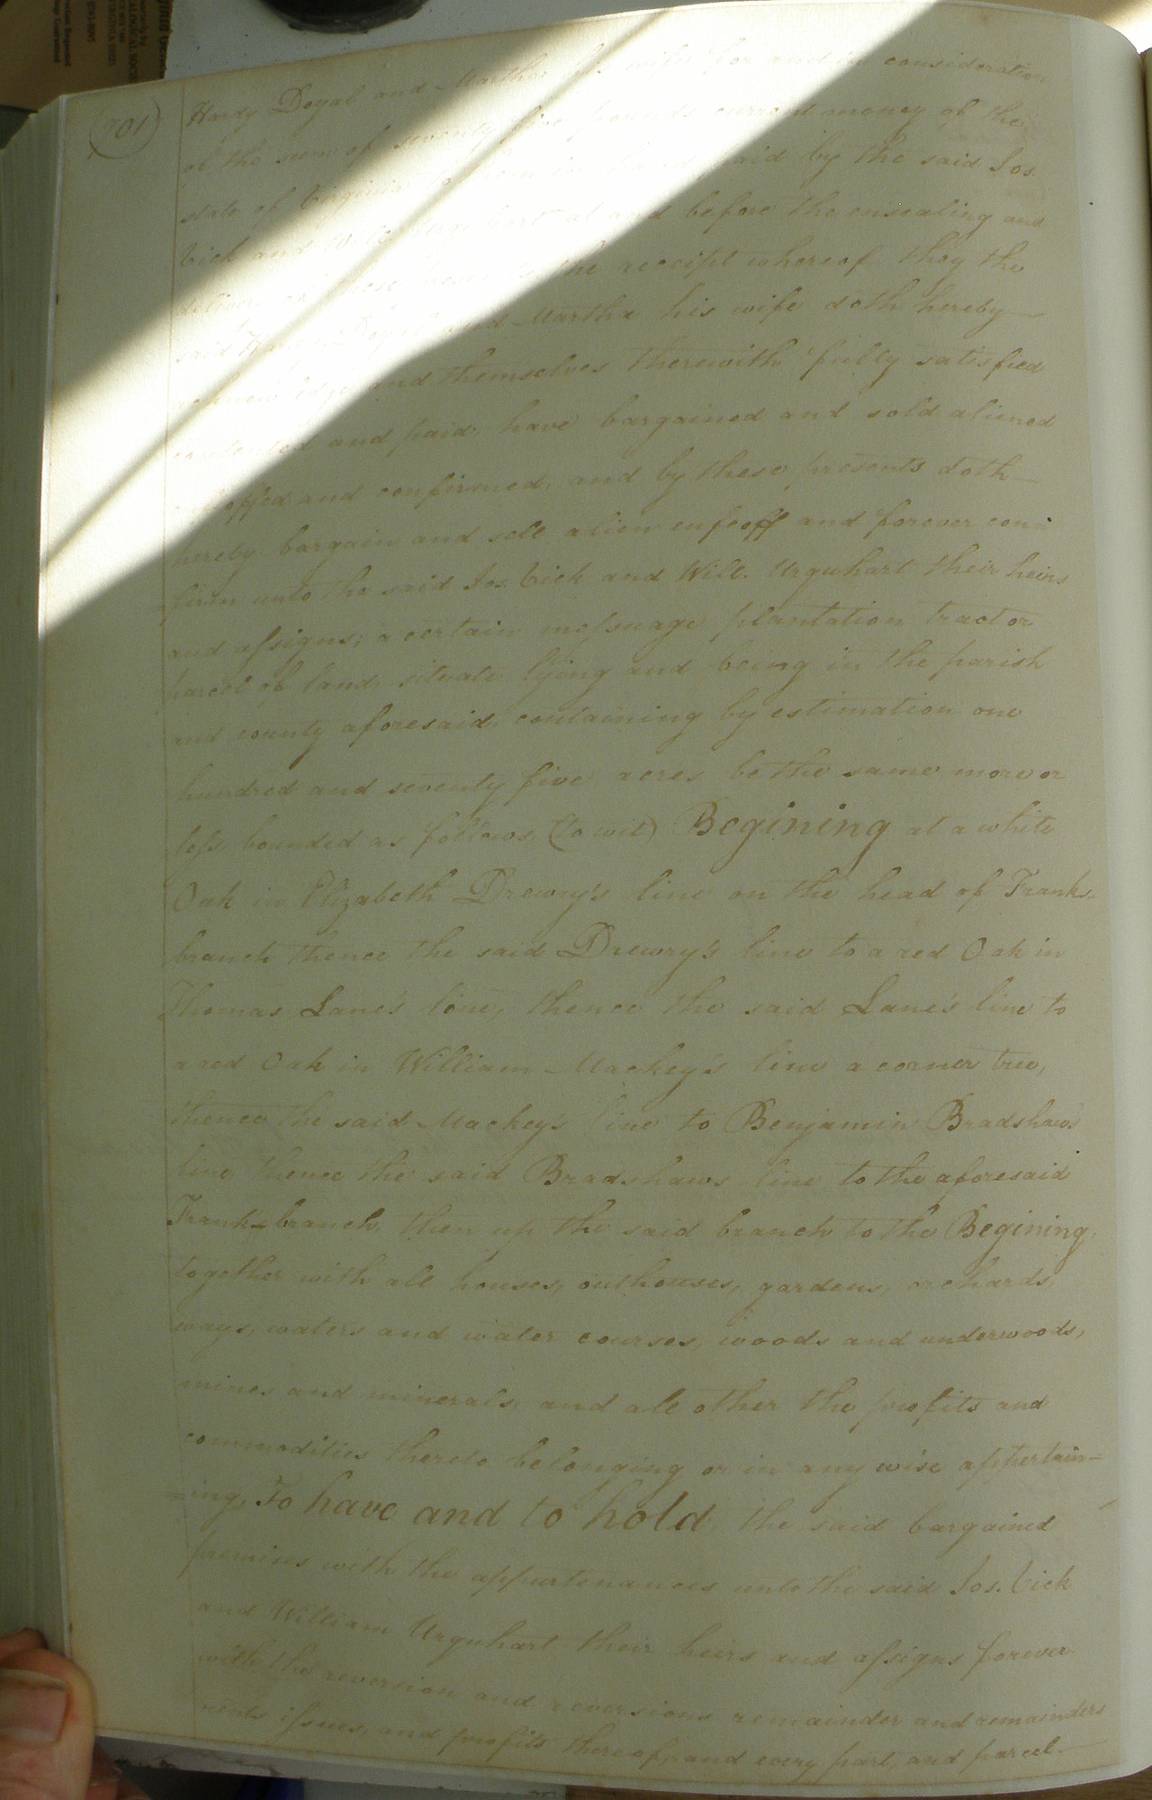 701
Hardy Doyal and Martha his wife for and in consideration
of the sum of seventy five pounds current money of the
state of Virginia to them in hand paid by the said Jos.
Vick and Will. Urquhart at and before the ensealing and
delivery of these presents the receipt whereof they the
said Hardy Doyal and Martha his wife doth hereby
acknowledge and themselves therewith fully satisfied
contented and paid, have bargained and sold aliened
and confirmed, and by these presents doth
hereby bargain and sell alien enfeoff and forever con=
firm unto the said Jos. Vick and Will. Urquhart their heirs
and assigns; a certain messuage plantation tract or
parcel of land, situate lying and being in the parish
and county aforesaid, containing by estimation one
hundred and seventy five acres be the same more or
less bounded as follows (to wit) Begining at a white
Oak in Elizabeth Drewry's line on the head of Franks-
branch thence the said Drewry's line to a red Oak in
Thomas Lane's line, thence the said Lane's line to
a red Oak in William Mackey's line a corner tree,
thence the said Mackey's line to Benjamin Bradshaw's
line, thence the said Bradshaws line to the aforesaid
Franks branch, then up the said branch to the Begining,
together with all houses, outhouses, gardens, orchards,
ways, waters and water courses, woods and underwoods,
mines and minerals, and all other the profits and
commodities thereto belonging or in any wise appertain-
=ing, To have and to hold, the said bargained
premises with the appurtenances unto the said Jos. Vick
and William Urquhart their heirs and assigns forever
with the reversion and reversions remainder and remainders
rents issues, and profits thereof, and every part, and parcel